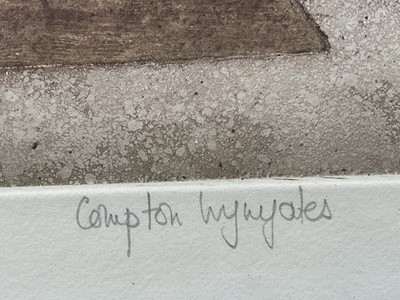 Compton Wynyates